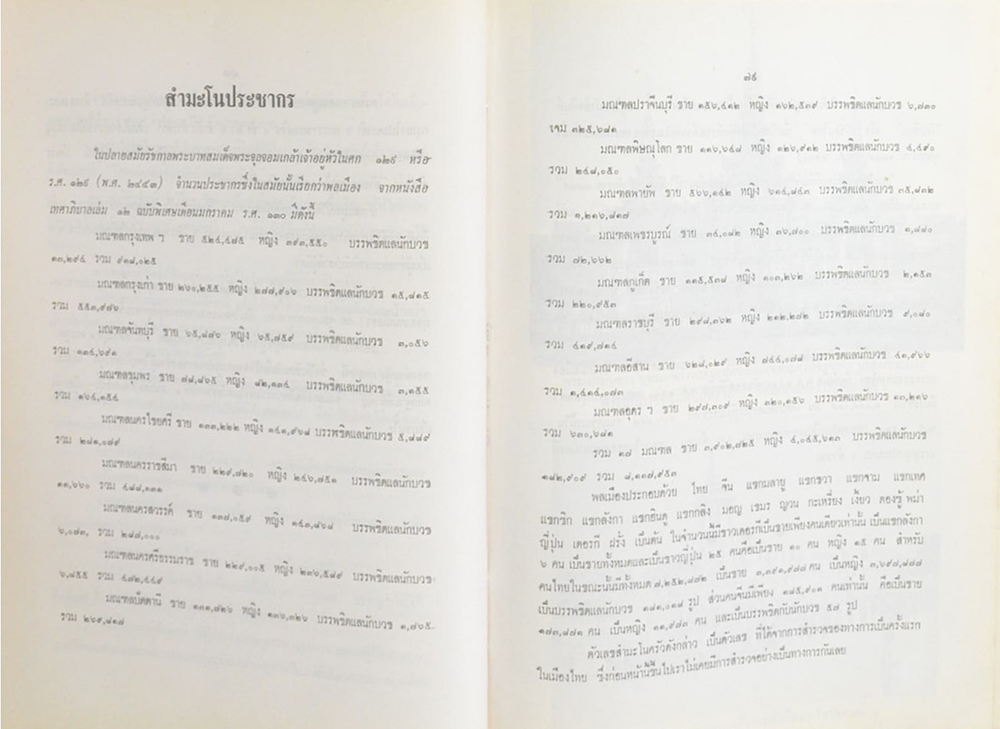 สำมะโนประชากร
ในปลายสมัยรัชกาลพระบาทสมเด็จพระจุลจอมเกล้าเจ้าอยู่หัวในศก ๑๒๙ หรือ
ร.ศ. ๑๒๙ (พ.ศ. ๒๔๕๓) จำนวนประชากรซึ่งในสมัยนั้นเรียกว่าพลเมือง จากหนังสือ
เทศาภิบาลเล่ม ๑๒ ฉบับพิเศษเดือนมกราคม ร.ศ. ๑๓๐ มีดังนี้
มณฑลกรุงเทพ ฯ ชาย ๕๒๔,๔๘๕ หญิง ๓๙๓,๕๕๐ บรรพชิตแลนักบวช
๑๓,๒๙๔ รวม ๙๑๘,๐๒๕
มณฑลกรุงเก่า ชาย ๒๖๐,๒๕๕ หญิง ๒๗๗,๙๐๖ บรรพชิตแลนักบวช ๑๕,๘๑๕
รวม ๕๕๓,๙๗๖
มณฑลจันทบุรี ชาย ๖๕,๘๗๖ หญิง ๖๕,๗๕๙ บรรพชิตแลนักบวช ๓,๐๕๖
รวม ๑๓๔,๖๙๑
มณฑลชุมพร ชาย ๗๘,๘๖๕ หญิง ๘๒,๑๓๔ บรรพชิตแลนักบวช ๓,๑๕๕
รวม ๑๖๔,๑๕๔
มณฑลนครไชยศรี ชาย ๑๓๓,๒๒๒ หญิง ๑๔๑,๙๖๘ บรรพชิตแลนักบวช ๕,๘๘๙
รวม ๒๘๑,๐๗๙
มณฑลนครราชสีมา ชาย ๒๒๙,๗๒๐ หญิง ๒๔๖,๗๕๑ บรรพชิตแลนักบวช
๑๑,๖๖๐ รวม ๔๘๘,๑๓๑
มณฑลนครสวรรค์ ชาย ๑๓๗,๐๕๙ หญิง ๑๔๓,๘๖๘ บรรพชิตแลนักบวช
๖,๐๗๓, รวม ๒๘๗,๐๐๐
มณฑลนครศรีธรรมราช ชาย ๒๒๙,๐๐๕ หญิง ๒๓๖,๕๘๙ บรรพชิตแลนักบวช
๖,๘๕๕ รวม ๔๗๒,๔๔๙
มณฑลปัตตานี ชาย ๑๓๑,๗๒๖ หญิง ๑๓๖,๓๒๖ บรรพชิตแลนักบวช ๑,๗๖๕
รวม ๒๖๙,๘๑๗
๗๕
มณฑลปราจีนบุรี ชาย ๑๕๖,๔๑๒ หญิง ๑๖๒,๕๓๙ บรรพชิตแลนักบวช ๖,๗๓๐
รวม ๓๒๕,๖๘๑
มณฑลพิษณุโลก ชาย ๑๑๖,๖๔๘ หญิง ๑๒๖,๙๑๒ บรรพชิตแลนักบวช ๔,๔๙๐
รวม ๒๔๘,๐๕๐
มณฑลพายัพ ชาย ๕๖๖,๑๔๒ หญิง ๖๑๔,๘๔๓ บรรพชิตแลนักบวช ๓๕,๘๓๒
รวม ๑,๒๑๖,๘๑๗
มณฑลเพชรบูรณ์ ชาย ๓๔,๐๘๒ หญิง ๓๖,๗๐๐ บรรพชิตแลนักบวช ๑,๘๘๐
รวม ๗๒,๖๖๒
มณฑลภูเก็ต ชาย ๑๑๕,๕๓๘ หญิง ๑๐๓,๒๖๒ บรรพชิตแลนักบวช ๒,๑๕๓
รวม ๒๒๐,๙๕๓
มณฑลราชบุรี ชาย ๒๙๘,๓๖๒ หญิง ๒๑๒.๒๗๒ บรรพชิตแลนักบวช ๙,๐๘๐
รวม ๔๑๙,๗๑๔
มณฑลอีสาน ชาย ๖๒๘,๐๒๙ หญิง ๗๔๔,๐๗๘ บรรพชิตแลนักบวช ๔๑,๙๖๖
รวม ๑,๔๑๔,๐๗๓
มณฑลอุดร ฯ ชาย ๒๙๗,๓๐๙ หญิง ๓๒๐,๑๕๖ บรรพชิตแลนักบวช ๑๓,๒๑๖
รวม ๖๓๐,๖๘๑
รวม ๑๗ มณฑล ชาย ๓,๙๐๒,๗๒๕ หญิง ๔,๐๔๕,๖๑๓ บรรพชิตแลนักบวช
๑๘๒,๙๐๙ รวม ๘,๑๓๗,๙๕๓
พลเมืองประกอบด้วย ไทย จีน แขกมลายู แขกชวา แขกจาม แขกเทศ
แขกซิก แขกลังกา แขกฮินดู แขกกลิง มอญ เขมร ญวน กะเหรี่ยง เงี้ยว ตองซู้ พม่า
ญี่ปุ่น เตอรกี ฝรั่ง เป็นต้น ในจำนวนนี้มีชาวเตอรกีเป็นชายเพียงคนเดียวเท่านั้น เป็นแขกลังกา
๖ คน เป็นชายทั้งหมดและเป็นชาวญี่ปุ่น ๒๕ คนคือเป็นชาย ๑๐ คน หญิง ๑๕ คน สำหรับ
คนไทยในขณะนั้นมีทั้งหมด ๗,๒๕๒,๗๘๒ เป็นชาย ๓,๓๙๑,๙๗๘ คน เป็นหญิง ๓,๖๙๗,๘๗๘
เป็นบรรพชิตแลนักบวช ๑๘๑,๐๑๘ รูป ส่วนคนจีนมีเพียง ๑๘๕,๙๐๑ คนเท่านั้น คือเป็นชาย
๑๗๓,๘๗๑ คน เป็นหญิง ๑๑,๙๘๓ คน และเป็นบรรพชิตกับนักบวช ๕๘ รูป
ตัวเลขสำมะโนครัวดังกล่าว เป็นตัวเลข ที่ได้จากการสำรวจของทางการเป็นครั้งแรก
ในเมืองไทย ซึ่งก่อนหน้านี้ขึ้นไปเราไม่เคยมีการสำรวจอย่างเป็นทางการกันเลย